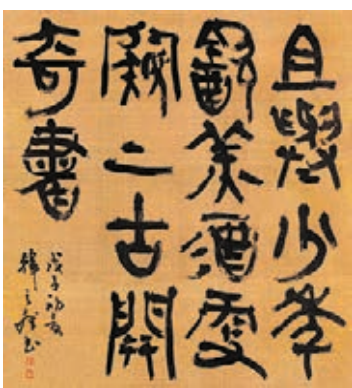 且與少年
飲美酒更
窺上古開
奇書
戊子初夏